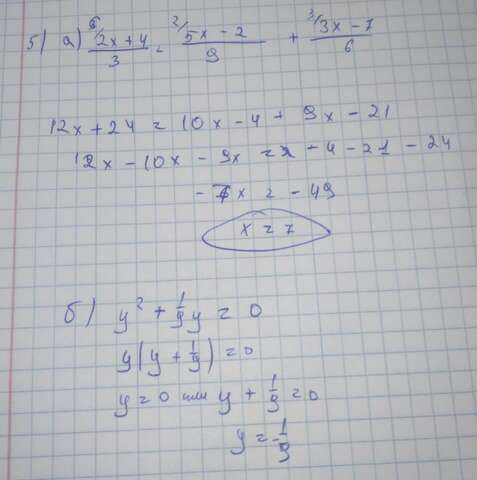 5) а) ⁶/2x + 4 / 3 = ²/5x - 2 / 9 + ³/3x - 7 / 6
12x + 24 = 10x - 4 + 9x - 21
12x - 10x - 9x = - 4 - 21 - 24
- 7x = - 49
x = 7
б) y² + 1/9 y = 0
y(y + 1/9) = 0
y = 0 или y + 1/9 = 0
y = - 1/9